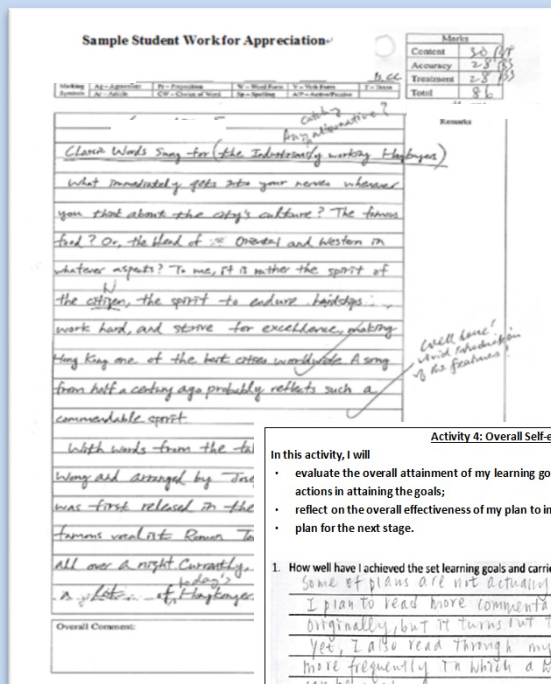 Sample Student Work for Appreciation
Marks
Content 30
Accuracy 28
Treatment 28
Total 86
Marking Symbols
Ag – Agreement
Pr – Preposition
W – Word Form
V – Verb Form
T – Tense
Ar – Article
CW – Choice of Word
Sp – Spelling
A/P – Active/Passive
Remarks
catchy
Any alternative?
Classic Words Sung for (the Industriously working Hongkongers)
What immediately gets into your nerves whenever
you think about the city's culture? The famous
food? Or, the blend of Oriental and Western in
whatever aspects? To me, it is rather the spirit of
the citizen, the spirit to endure hardships,
work hard, and strive for excellence, making
Hong Kong one of the best cities worldwide. A song
from half a century ago probably reflects such a
commendable spirit.
Well done!
vivid introduction
of the features!
With words from the
Wong and arranged by
was first released in the
famous vocalist Roman
all over a night. Currently,
today's
a lot of Hongkonger
Overall Comment:
Activity 4: Overall Self-e
In this activity, I will
• evaluate the overall attainment of my learning go
actions in attaining the goals;
• reflect on the overall effectiveness of my plan to in
• plan for the next stage.
1. How well have I achieved the set learning goals and carrie
Some of plans are not actually
I plan to read more commenta
originally, but it turns out t
Yet, I also read through my
more frequently in which a